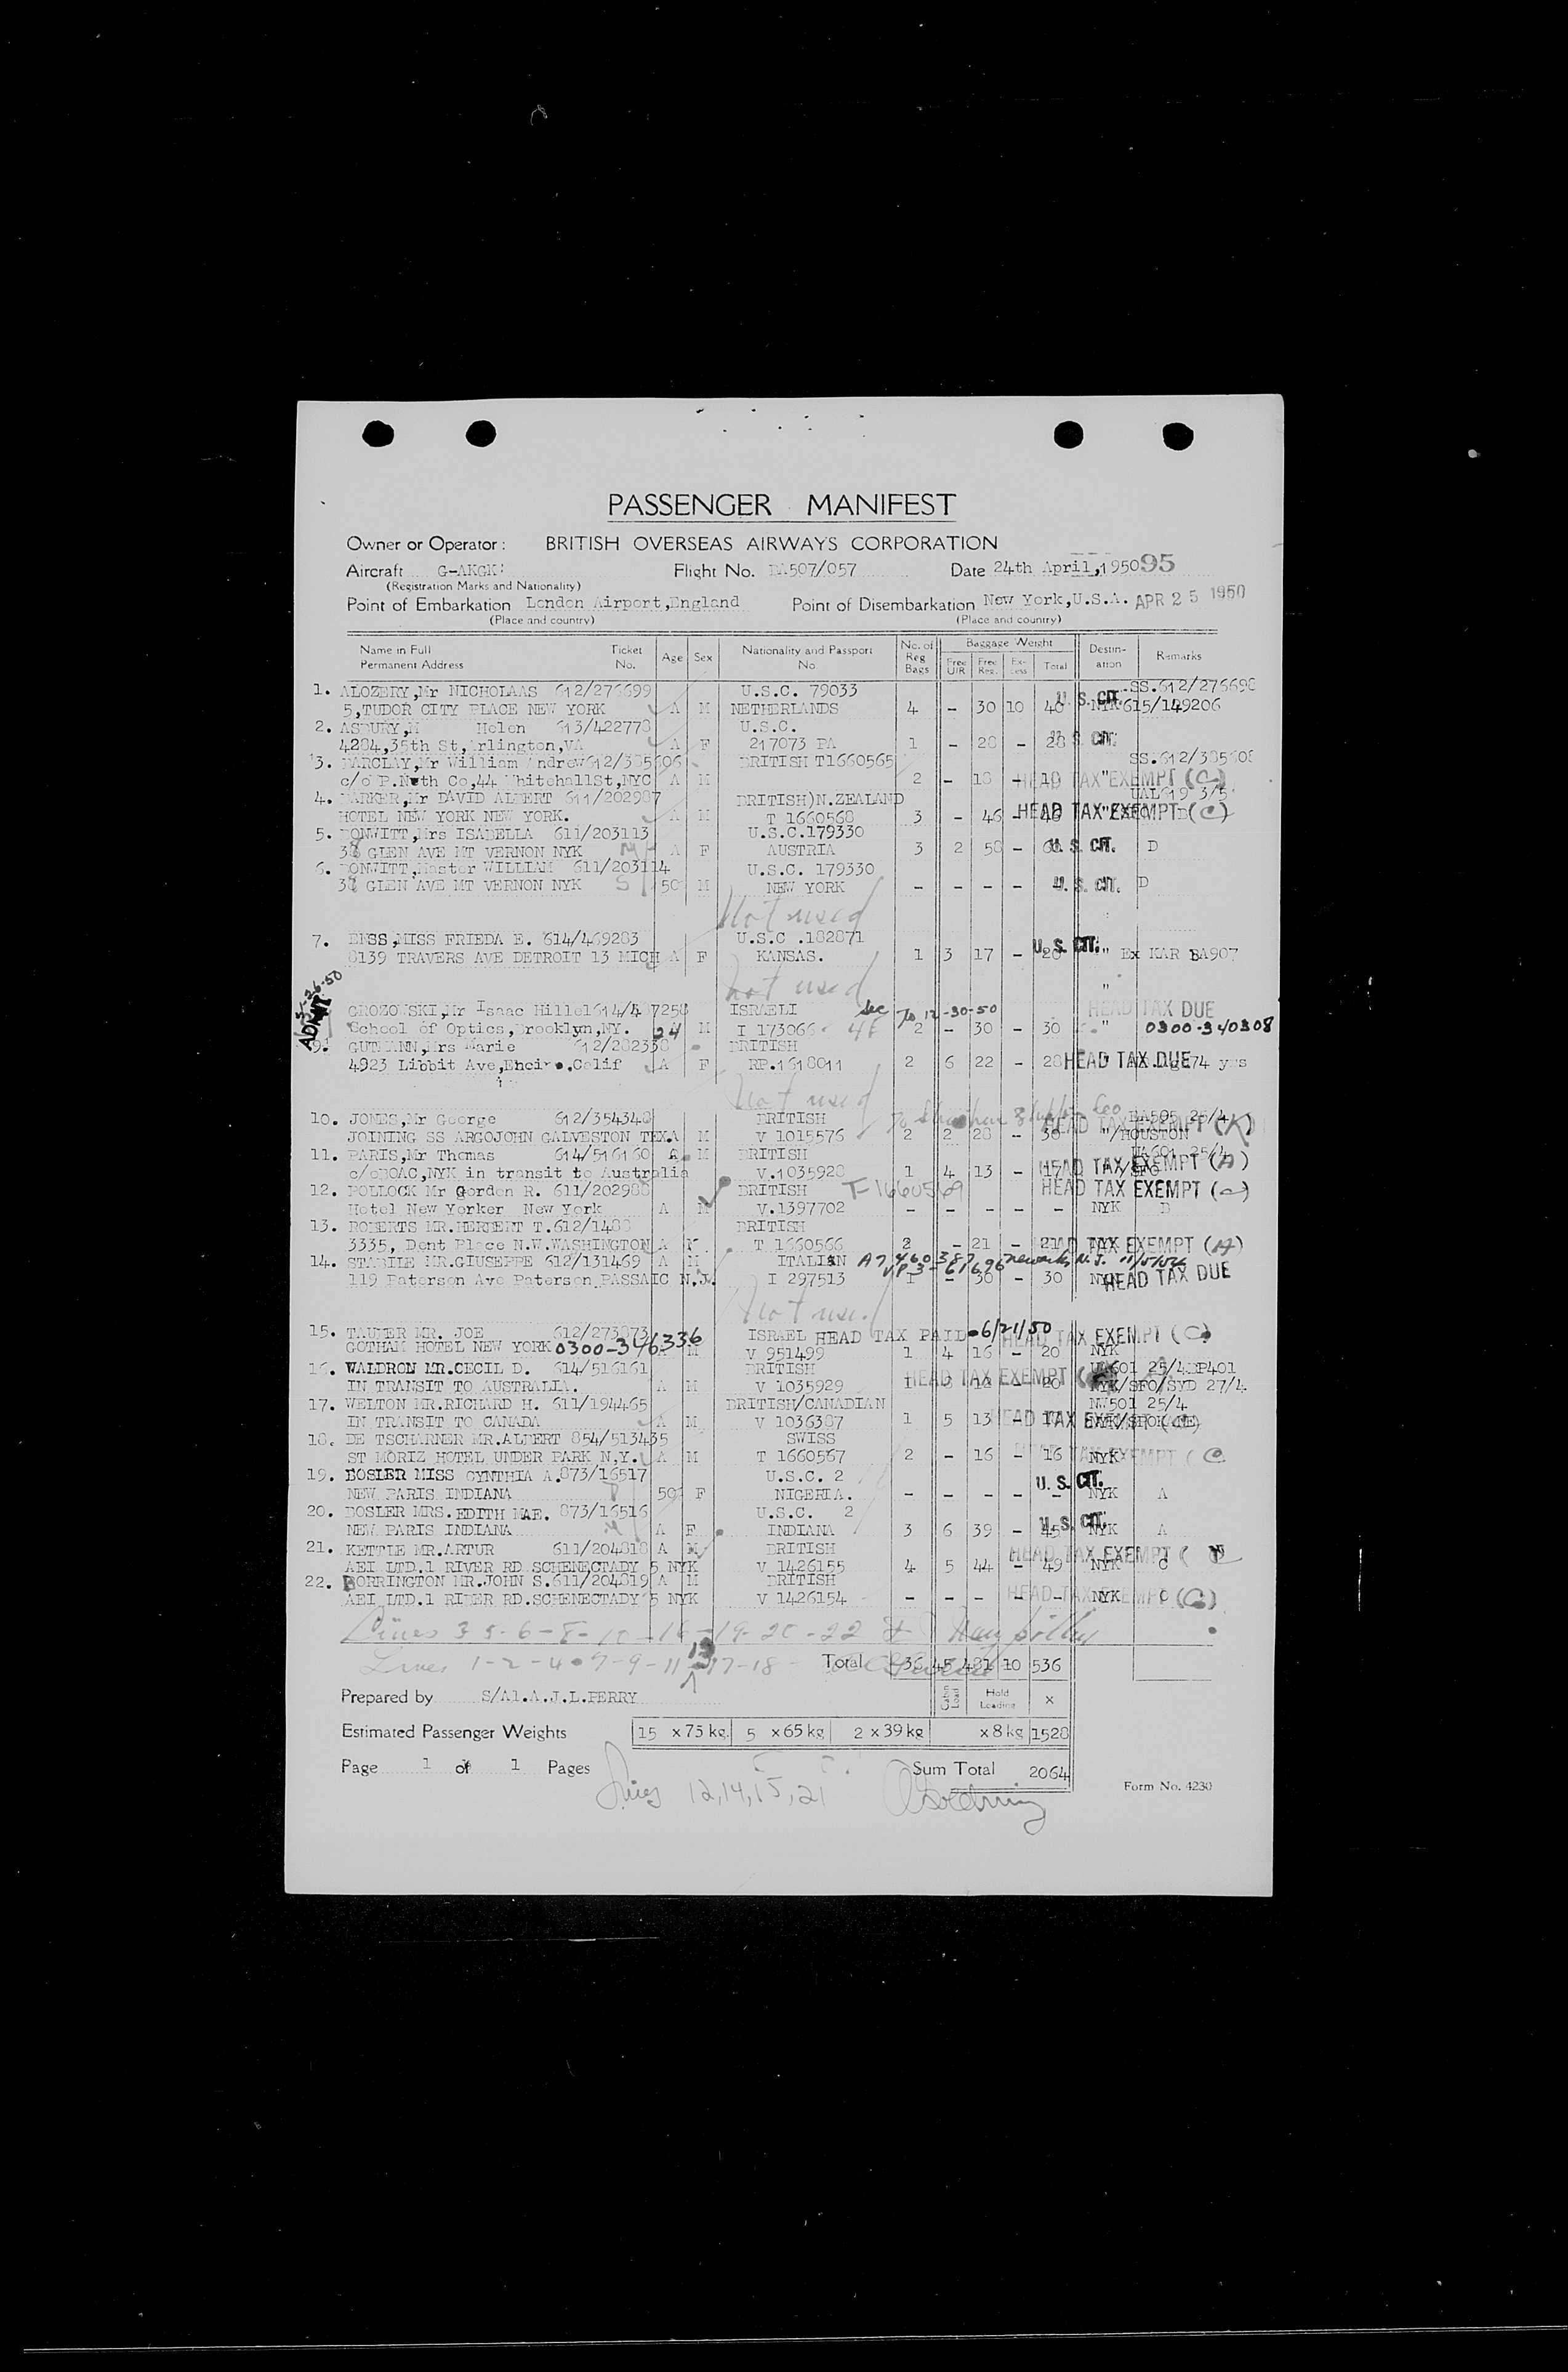 PASSENGER MANIFEST
Owner or Operator : BRITISH OVERSEAS AIRWAYS CORPORATION
Aircraft G-AKGK Flight No. BA507/057 Date 24th April,1950 95
(Registration Marks and Nationality)
Point of Embarkation London Airport,England Point of Disembarkation New York,U.S.A. APR 25 1950
(Place and country) (Place and country)
Name in Full Ticket Age Sex Nationality and Passport No. of Baggage Weight Destin- Remarks
Permanent Address No. No Reg Bags Free U/R Free Reg. Ex-cess Total ation
1. ALOZERY,Mr NICHOLAAS 612/276699 U.S.C. 79033 SS.612/276698
5,TUDOR CITY PLACE NEW YORK A M NETHERLANDS 4 - 30 10 40 U.S. CIT. NYK 615/149206
2. ASBURY,M Helen 613/422778 U.S.C.
4284,35th St,Arlington,VA A F 217073 PA 1 - 28 - 28 U.S. CIT.
3. BARCLAY,Mr William Andrew 612/385606 BRITISH T1660565 SS.612/385608
c/o P.Nwth Co,44 WhitehallSt,NYC A M 2 - 18 - 18 " HEAD TAX EXEMPT (C)
4. BARKER,Mr DAVID ALBERT 611/202987 BRITISH)N.ZEALAND UAL619 3/5
HOTEL NEW YORK NEW YORK. A M T 1660568 3 - 46 - 46 " HEAD TAX EXEMPT (C)
5. BONWITT,Mrs ISABELLA 611/203113 U.S.C.179330
38 GLEN AVE MT VERNON NYK A F AUSTRIA 3 2 58 - 60 U.S. CIT. D
6. BONWITT,Master WILLIAM 611/203114 U.S.C. 179330
38 GLEN AVE MT VERNON NYK 50 M NEW YORK - - - - U.S. CIT. D
Not used
7. ENSS,MISS FRIEDA E. 614/469283 U.S.C .182871
8139 TRAVERS AVE DETROIT 13 MICH A F KANSAS. 1 3 17 - 20 U.S. CIT. " Ex KAR BA907
not used "
ADMIT 5-26-50
GROZOWSKI,Mr Isaac Hillel 614/487258 ISRAELI Sec To 12-30-50 HEAD TAX DUE
School of Optics,Brooklyn,NY. 24 M I 173066 4E 2 - 30 - 30 " 0300-340308
9. GUTMANN,Mrs Marie 612/282338 BRITISH
4923 Libbit Ave,Encino,Calif A F RP.1618011 2 6 22 - 28 HEAD TAX DUE 74 yrs
Not used
10. JONES,Mr George 612/354348 BRITISH BA505 25/4
JOINING SS ARGOJOHN GALVESTON TEX A M V 1015576 2 2 28 - 30 "/HOUSTON HEAD TAX EXEMPT (K)
11. PARIS,Mr Thomas 614/516160 A M BRITISH UA601 25/4
c/oBOAC,NYK in transit to Australia V.1035928 1 4 13 - 17 "/SFO HEAD TAX EXEMPT (A)
12. POLLOCK Mr Gordon R. 611/202988 BRITISH T-1660569 HEAD TAX EXEMPT (C)
Hotel New Yorker New York A M V.1397702 - - - - - NYK B
13. ROBERTS MR.HERBERT T. 612/1488 BRITISH
3335, Dent Place N.W.WASHINGTON A M T 1660566 2 - 21 - 21 NYK HEAD TAX EXEMPT (A)
14. STABILE MR.GIUSEPPE 612/131469 A M ITALIAN A7 460 387 Newark N.J. 11/5/56
119 Paterson Ave Paterson PASSAIC N.J. I 297513 1 - 30 - 30 NYK HEAD TAX DUE
Not used
15. TAUBER MR. JOE 612/273873 ISRAEL HEAD TAX PAID 6/21/50 HEAD TAX EXEMPT (C)
GOTHAM HOTEL NEW YORK 0300-346336 M V 951499 1 4 16 - 20 NYK
16. WALDRON MR.CECIL D. 614/516161 BRITISH HEAD TAX EXEMPT UA601 25/4 BP401
IN TRANSIT TO AUSTRALIA. A M V 1035929 1 - 20 NYK/SFO/SYD 27/4
17. WELTON MR.RICHARD H. 611/194465 BRITISH/CANADIAN NW501 25/4
IN TRANSIT TO CANADA A M V 1036387 1 5 13 - NYK/SPOKANE HEAD TAX EXEMPT
18. DE TSCHARNER MR.ALBERT 854/513435 SWISS
ST MORIZ HOTEL UNDER PARK N.Y. A M T 1660567 2 - 16 - 16 NYK HEAD TAX EXEMPT (C
19. BOSLER MISS CYNTHIA A. 873/16517 U.S.C. 2 U.S. CIT.
NEW PARIS INDIANA 50 F NIGERIA. - - - - - NYK A
20. BOSLER MRS.EDITH MAE. 873/16516 U.S.C. 2
NEW PARIS INDIANA A F INDIANA 3 6 39 - 45 U.S. CIT. NYK A
21. KETTLE MR.ARTUR 611/204818 A M BRITISH HEAD TAX EXEMPT (
AEI LTD.1 RIVER RD SCHENECTADY 5 NYK V 1426155 4 5 44 - 49 NYK C
22. BORRINGTON MR.JOHN S. 611/204819 A M BRITISH
AEI LTD.1 RIDER RD.SCHENECTADY 5 NYK V 1426154 - - - - - NYK C HEAD TAX EXEMPT (C)
Lines 3 5-6-8-10-16-19-20-22
Lines 1-2-4-7-9-11-13-17-18 Total 36 45 481 10 536
Prepared by S/A1.A.J.L.PERRY Cabin Load Hold Loading x
Estimated Passenger Weights 15 x 75 kg. 5 x 65 kg 2 x 39 kg x 8 kg 1528
Page 1 of 1 Pages Sum Total 2064
Lines 12,14,15,21
Form No. 4230